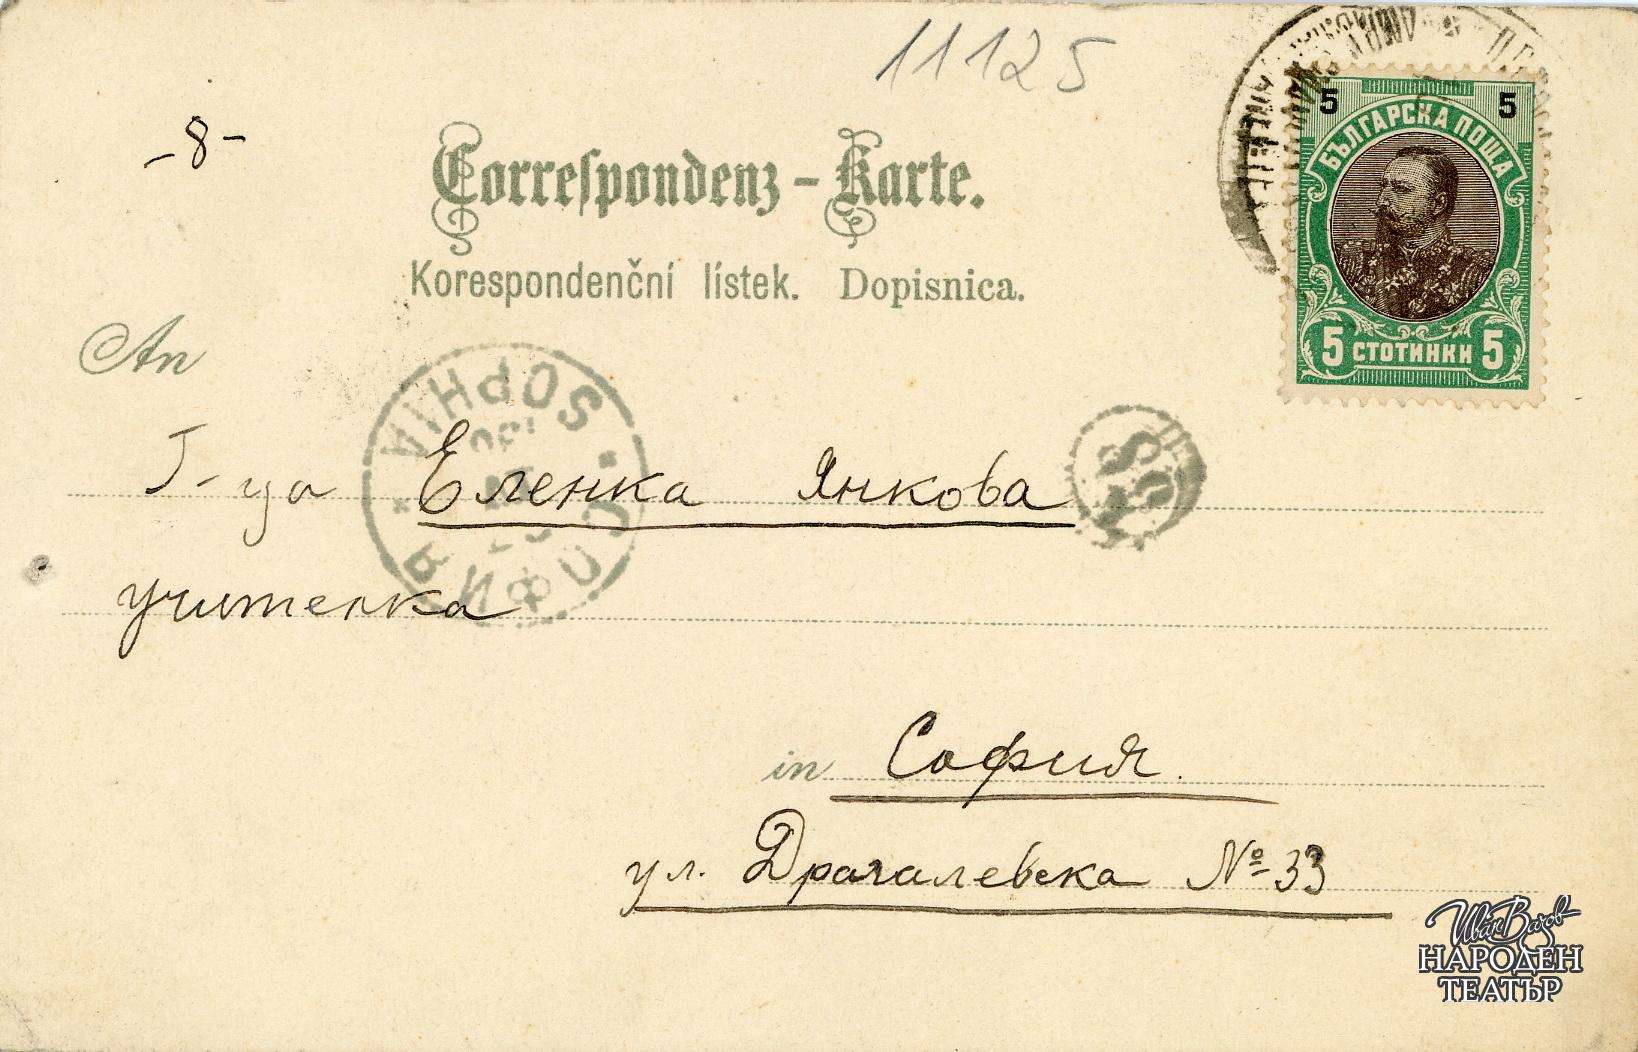 11125
-8-
5 5
БЪЛГАРСКА ПОЩА
Correspondenz-Karte.
Korespondenční lístek. Dopisnica.
5 СТОТИНКИ 5
An
SOPHIA
Г-ца Еленка Янкова
89
СОФИЯ
учителка
in София.
ул. Драгалевска № 33
Иван Вазов
НАРОДЕН
ТЕАТЪР